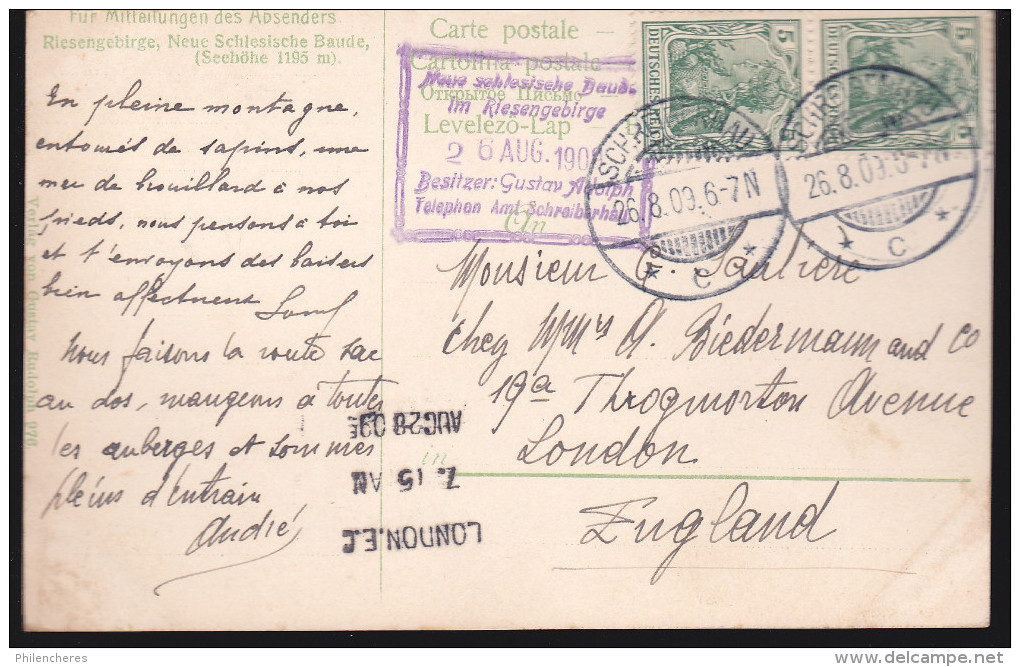 Für Mitteilungen des Absenders.
Riesengebirge, Neue Schlesische Baude,
(Seehöhe 1195 m).
En pleine montagne,
entourés de sapins, une
mer de brouillard à nos
pieds, nous pensons à toi
et t'envoyons des baisers
bien affectueux
Nous faisons la route sac
au dos, mangeons à toutes
les auberges et sommes
pleins d'entrain
André
Verlag von Gustav Rudolph 976
Carte postale
Cartolina postale
Открытое Письмо
Levelezö-Lap
An
in
Neue schlesische Baude
im Riesengebirge
26 AUG. 190
Besitzer: Gustav Adolph
Telephon Amt Schreiberhau
DEUTSCHES REICH
5
5
DEUTSCHES REICH
5
5
26.8.09.6-7N
* c *
26.8.09.6-7N
* c *
Monsieur G.
chez Mm⁠rs A. Biedermann and Co
19a Throgmorton Avenue
London
England
LONDON.E.C
7.15 AM
AUG 28 09
Philencheres
www.delcampe.net